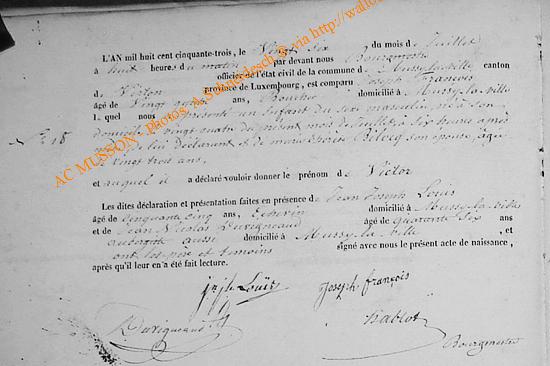 L'AN mil huit cent cinquante-trois, le Vingt Six du mois de Juillet
à huit heures du matin par devant nous Bourgmestre
officier de l'état civil de la commune de Mussy-la-ville canton
de Virton province de Luxembourg, est comparu Joseph François
âgé de Vingt quatre ans, domicilié à Mussy-la-ville
lequel nous a présenté un enfant du sexe masculin, né à son
domicile, Vingt quatre du présent mois de Juillet à Six heures
de lui Déclarant et de marie son épouse,
de vingt trois ans,
et auquel il a déclaré vouloir donner le prénom de Victor
Les dites déclaration et présentation faites en présence de Jean Joseph Louis
âgé de Cinquante Cinq ans, Echevin domicilié à Mussy-la-ville
et de Jean Nicolas Duvigneaud âgé de quarante Six ans
aussi domicilié à Mussy-la-ville, et
ont les père et témoins signé avec nous le présent acte de naissance,
après qu'il leur en a été fait lecture.
Louis Joseph françois
Duvigneaud
Bourgmestre
AC MUSSON, Photos via http://